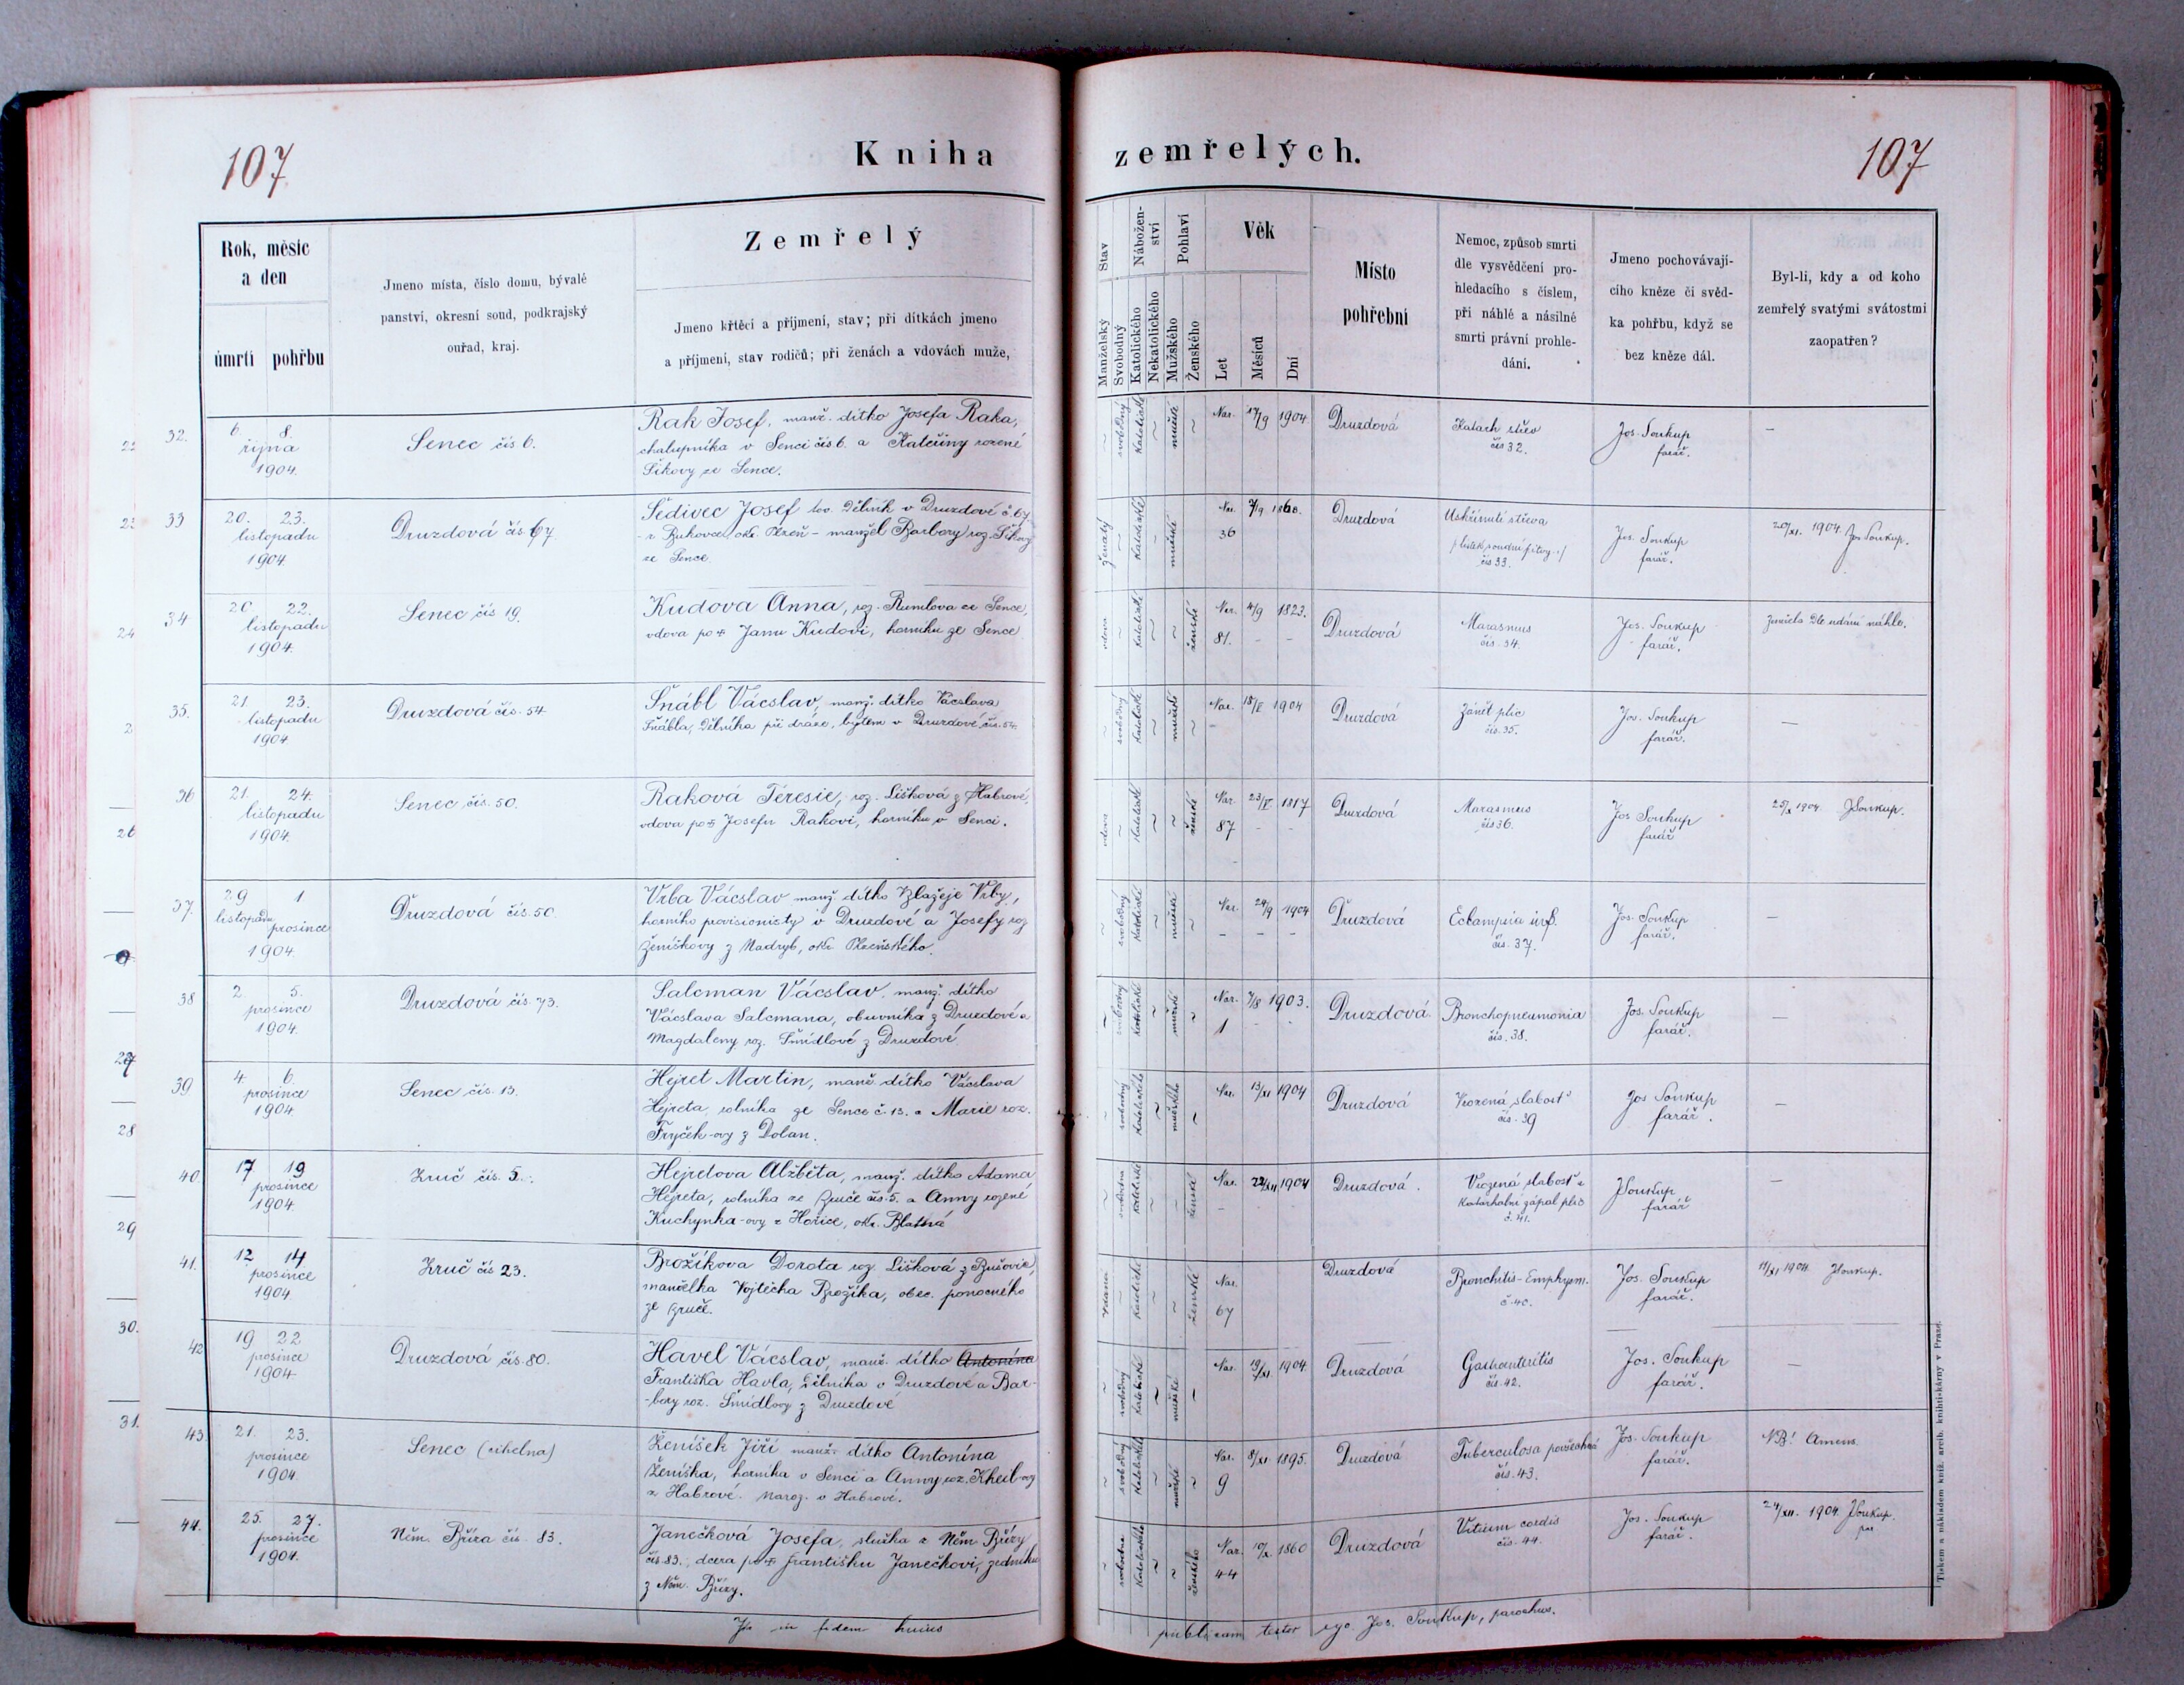 107
Kniha zemřelých.
107
Rok, měsíc
a den
úmrtí pohřbu
Jmeno místa, číslo domu, bývalé
panství, okresní soud, podkrajský
ouřad, kraj.
Zemřelý
Jmeno křtěcí a příjmení, stav; při dítkách jmeno
a příjmení, stav rodičů; při ženách a vdovách muže,
Stav
Manželský
Svobodný
Nábožen-
ství
Katolického
Nekatolického
Pohlaví
Mužského
Ženského
Věk
Let
Měsíců
Dní
Místo
pohřební
Nemoc, způsob smrti
dle vysvědčení pro-
hledacího s číslem,
při náhlé a násilné
smrti právní prohle-
dání.
Jmeno pochovávají-
cího kněze či svěd-
ka pohřbu, když se
bez kněze dál.
Byl-li, kdy a od koho
zemřelý svatými svátostmi
zaopatřen?
32. 6. 8.
října
1904.
Senec čís 6.
Rak Josef, manž. dítko Josefa Raka,
chalupníka v Senci čís 6. a Kateřiny rozené
Šikovy ze Sence.
svobodný katolické mužské
Nar. 17/9 1904
Druzdová
Katarh střev
čís 32.
Jos. Soukup
farář.
—
33 20. 23.
listopadu
1904
Druzdová čís. 67
Šedivec Josef dělník v Druzdové č. 67
- z Bukovce okr. Plzeň - manžel Barbory roz. Šikovy
ze Sence.
ženatý katolické mužské
Nar. 7/9 1868.
36
Druzdová
Uskřinutí střeva
čís 33.
Jos. Soukup
farář.
20/XI. 1904. Jos Soukup.
34 20. 22.
listopadu
1904.
Senec čís 19.
Kudova Anna, roz. Rumlova ze Sence,
vdova po † Janu Kudovi, horníku ze Sence
vdova katolické ženské
Nar. 4/9 1823.
81. - -
Druzdová
Marasmus
čís. 34.
Jos. Soukup
farář.
Zemřela dle udání náhle.
35. 21. 23.
listopadu
1904
Druzdová čís. 54
Šnábl Vácslav, manž. dítko Vácslava
Šnábla, dělníka při dráze, bytem v Druzdové čís. 54.
svobodný katolické mužské
Nar. 1904
Druzdová
Zánět plic
čís. 35.
Jos. Soukup
farář.
—
36 21. 24.
listopadu
1904.
Senec čís. 50.
Raková Teresie, roz. Lišková z Habrové,
vdova po † Josefu Rakovi, horníku v Senci.
vdova katolické ženské
Nar. 1817
87 - -
Druzdová
Marasmus
čís 36.
Jos Soukup
farář
1904. JSoukup.
37. 29 1
listopadu prosince
1904.
Druzdová čís. 50.
Vrba Vácslav manž. dítko Blažeje Vrby,
horního provisionisty v Druzdové a Josefy roz
Ženíškovy z Nadryb, okr. Plzeňského.
svobodný katolické mužské
Nar. 24/9 1904
- - -
Druzdová
Eclampsia inf.
čís. 37.
Jos. Soukup
farář.
—
38 2 5.
prosince
1904.
Druzdová čís. 73.
Salcman Vácslav, manž. dítko
Vácslava Salcmana, obuvníka z Druzdové a
Magdaleny roz. Šmídlové z Druzdové
svobodný katolické mužské
Nar. 1903.
1
Druzdová.
Bronchopneumonia
čís. 38.
Jos. Soukup
farář.
—
39 4. 6.
prosince
1904
Senec čís. 13.
Hejret Martin, manž. dítko Vácslava
Hejreta, rolníka ze Sence č. 13. a Marie roz.
Fryček-ovy z Dolan.
svobodný katolického mužského
Nar. 13/XI 1904
Druzdová
Vrozená slabosť
čís. 39
Jos Soukup
farář.
—
40. 17 19
prosince
1904.
Zruč čís. 5.
Hejretova Alžběta, manž. dítko Adama
Hejreta, rolníka ze Zruče čís. 5. a Anny rozené
Kuchynka-ovy z Hořice, okr. Blatná
svobodná katolické ženské
Nar. 1904
Druzdová.
Vrozená slabosť a
Katarhalní zápal plic
č. 41.
JSoukup
farář
—
41. 12 14
prosince
1904.
Zruč čís 23.
Brožíkova Dorota roz. Lišková z Bušovic,
manželka Vojtěcha Brožíka, obec. ponocného
ze Zruče.
vdaná katolické ženské
Nar.
67
Druzdová
Bronchitis - Emphysem.
č. 40.
Jos. Soukup
farář.
11/XI 1904. JSoukup.
42 19 22
prosince
1904.
Druzdová čís. 80.
Havel Vácslav, manž. dítko Antonína
Františka Havla, dělníka v Druzdové a Bar-
-bory roz. Šmídlovy z Druzdové
svobodný katolické mužské
Nar. 19/XI. 1904
Druzdová
Gastroenteritis
čís. 42.
Jos. Soukup
farář.
—
43 21. 23.
prosince
1904.
Senec (cihelna)
Ženíšek Jiří manž. dítko Antonína
Ženíška, horníka v Senci a Anny roz. Kheil-ovy
z Habrové. Naroz. v Habrové.
svobodný katolické mužské
Nar. 8/XI. 1895.
9
Druzdová
Tuberculosa
čís. 43.
Jos. Soukup
farář.
NB! Amens.
44. 25. 27.
prosince
1904.
Něm. Bříza čís. 83.
Janečková Josefa, služka z Něm. Břízy
čís. 83., dcera po † Františku Janečkovi, zedníku
z Něm. Břízy.
svobodná katolického ženského
Nar. 10/X. 1860
44
Druzdová
Vitium cordis
čís. 44.
Jos. Soukup
farář.
24/XII. 1904. JSoukup.
Ita in fidem huius publicam testor ego Jos. Soukup, parochus.
Tiskem a nákladem kníž. arcib. knihtiskárny v Praze.